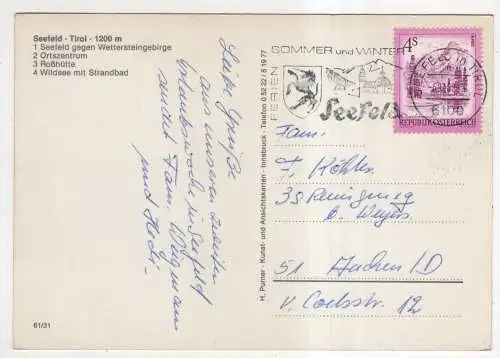 Seefeld - Tirol - 1200 m
1 Seefeld gegen Wettersteingebirge
2 Ortszentrum
3 Roßhütte
4 Wildsee mit Strandbad
Liebe Grüße
aus unserer zweiten
Urlaubswoche in Seefeld
sendet Fam.
und Hedi.
61/31
H. Purner - Kunst- und Ansichtskarten - Innsbruck - Telefon 0 52 22 / 8 19 77
FERIEN
SOMMER und WINTER
Seefeld
6100
4 S
REPUBLIK ÖSTERREICH
Fam.
F. Köhler
b.
51 Aachen / D
v. Coelsstr. 12